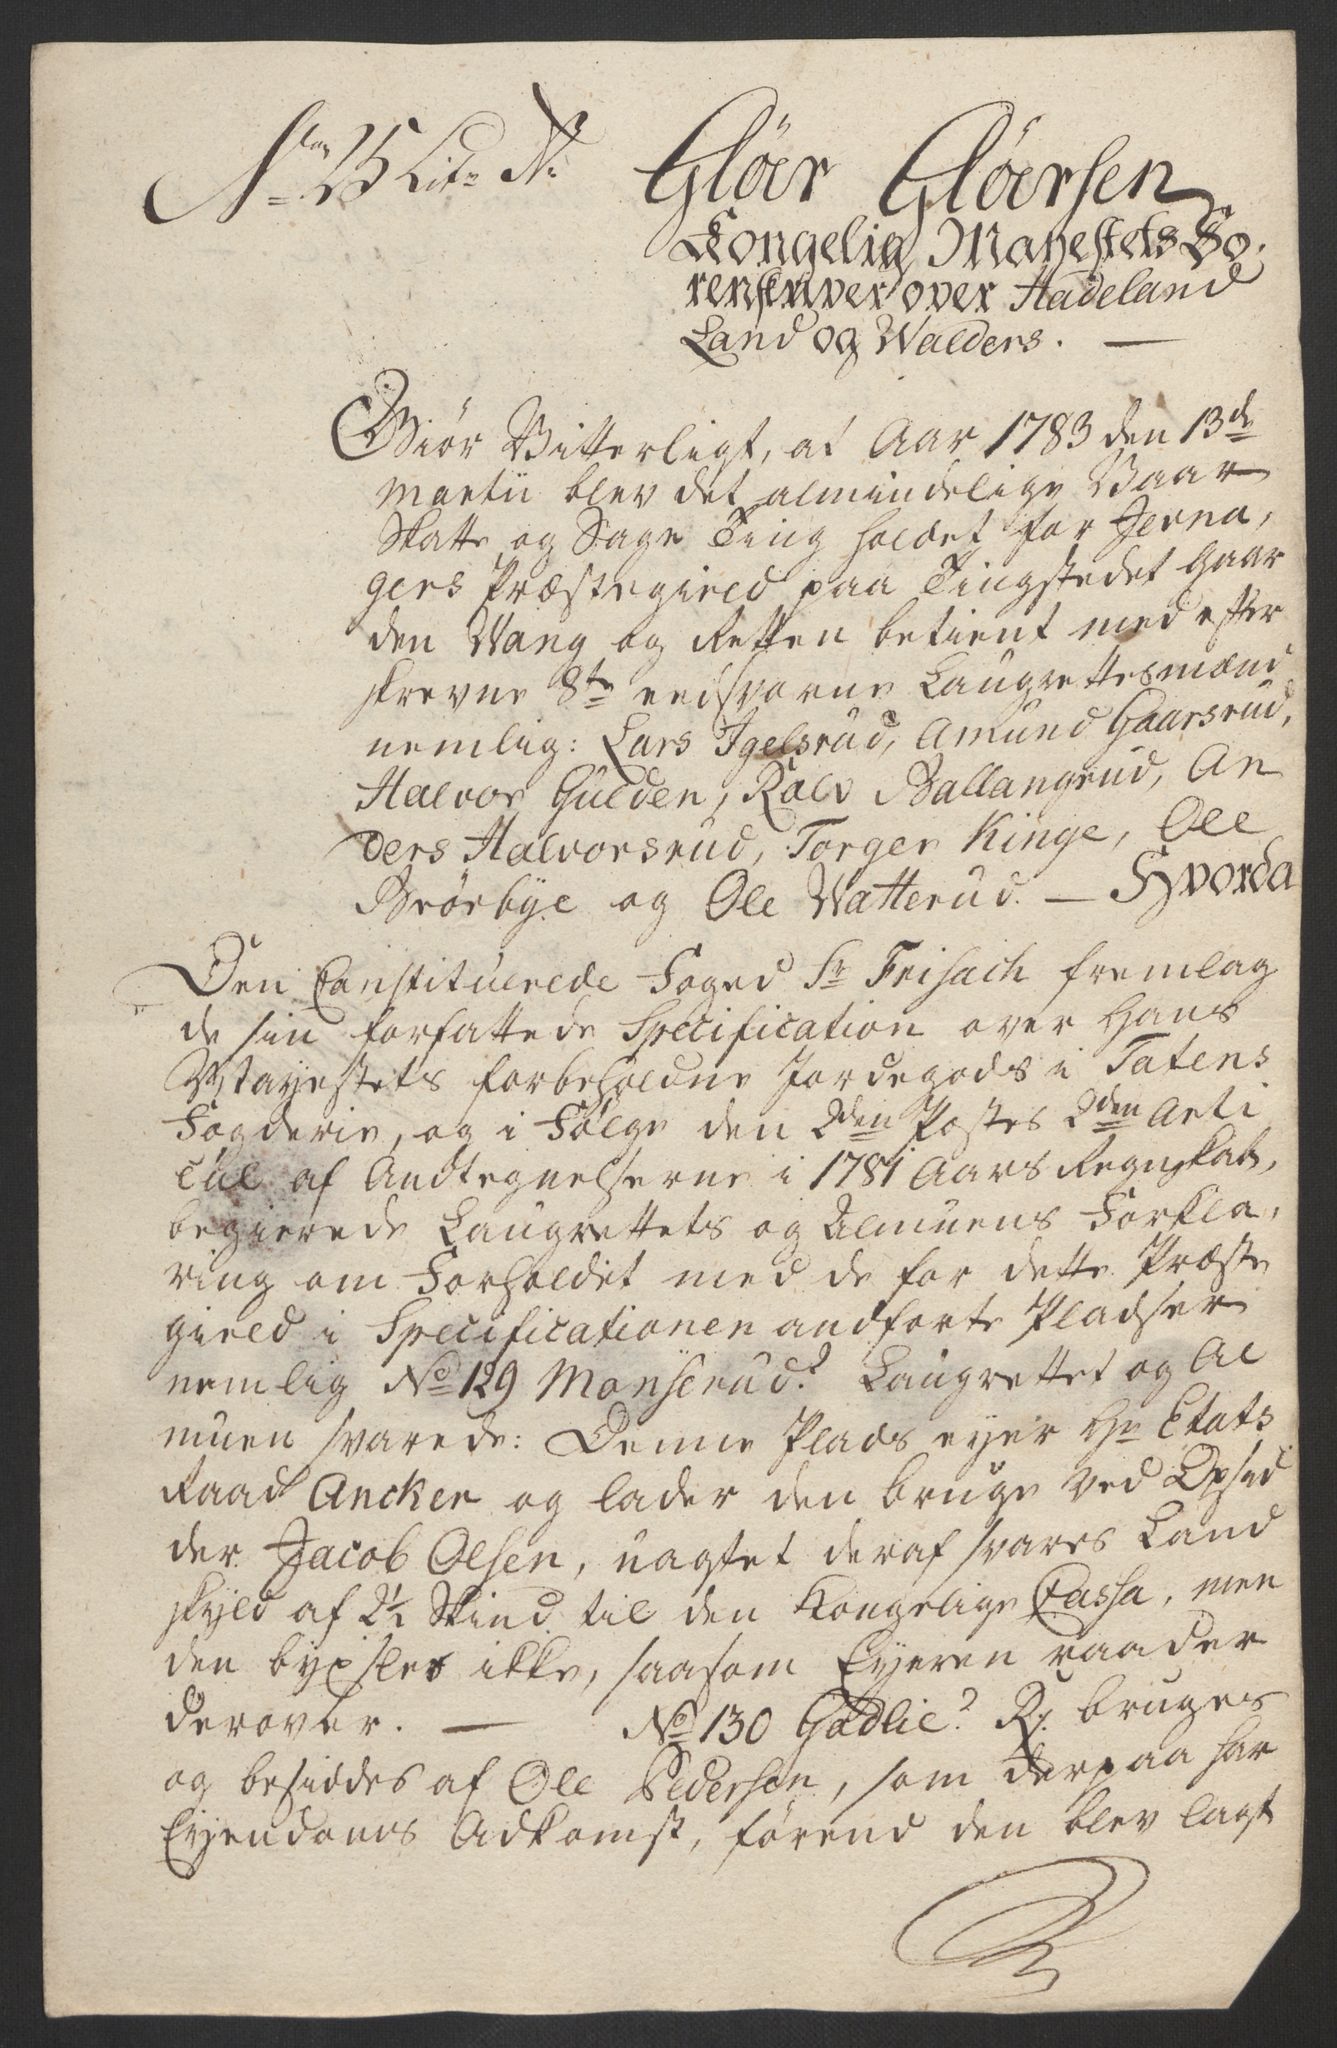 No 25 Lit: N:
Glöer Glöersen
Kongelig Mayestets So-
renskriver over Hadeland
Land og Walders. —
Giör Vitterligt, at Aar 1783 den 13de
Martii blev det almindelige Vaar
Skatte og Sage Ting holdet for Jevna,
gers Præstegield paa Tingstedet Gaar
den Wang og Retten betient med efter
skrevne 8te eedsvorne Laugrettesmænd
nemlig: Lars Igelsrud, Amund Gaarsrud,
Halvor Gulden, Rolv Ballangrud, An
ders Halvorsrud, Torger Kinge, Ole
Brörbye og Ole Watterud. — Hvorda
Den Constituerede Foged Sr Frisach fremlag
de sin forfattede Specification over Hans
Mayestets forbeholdne Jordegods i Totens
Fogderie, og i Fölge den 2den Postes 2den Arti
cul af Andtegnelserne i 1781 Aars Regnskab,
begierede Laugrettets og Almuens Forkla,
ring om Forholdet med de for dette Præste
gield i Specificationen andforte Pladser
nemlig No 129 Monserud? Laugrettet og Al
muen svarede: Denne Plads eyer Hr Etats
Raad Ancker og lader den bruge ved Opsid
der Jacob Olsen, uagtet deraf svares Land
skyld af 2½ Skind til den Kongelige Cassa, men
den byxsles ikke, saasom Eyeren raader
derover. — No 130 Gadlie? R. bruges
og besiddes af Ole Pedersen, som derpaa har
Eyendoms Adkomst, förend den blev lagt